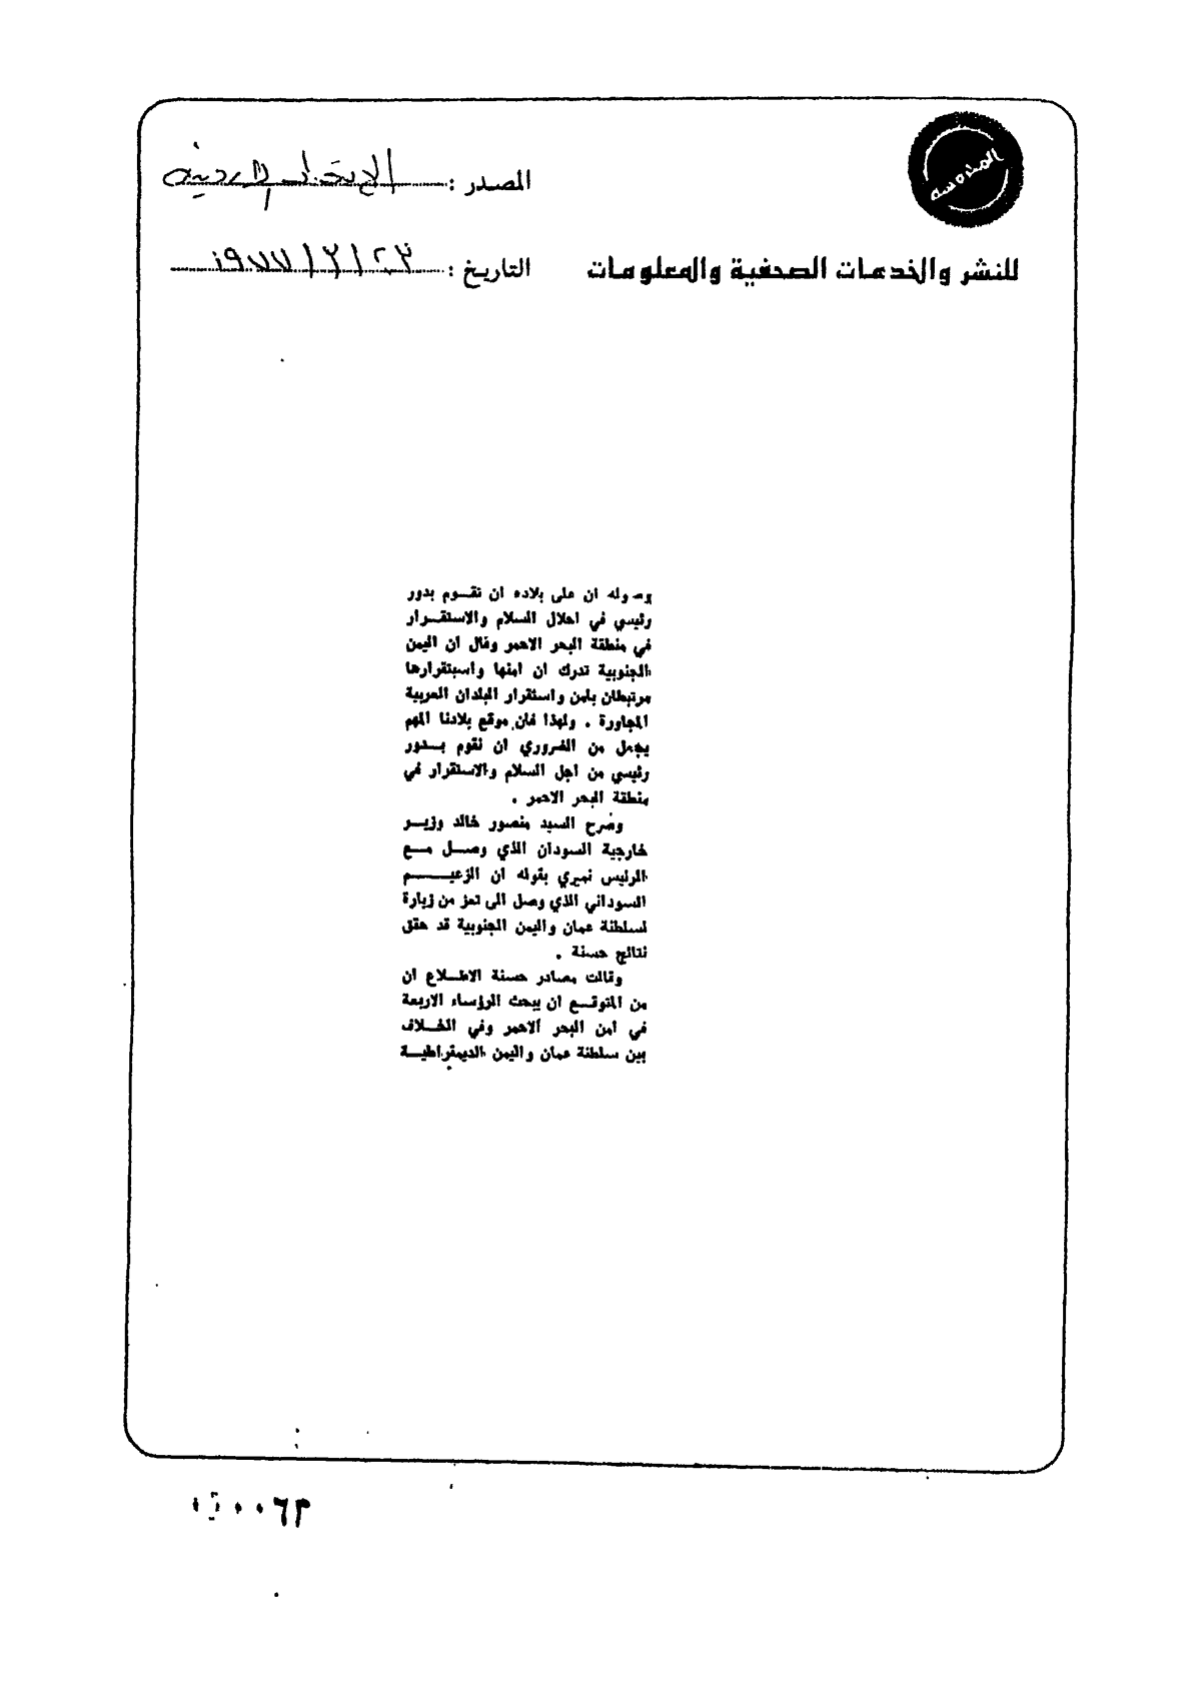 المدوسه
المصدر : الاردنية
للنشر والخدمات الصحفية والمعلومات
التاريخ : ٢٣ / ٣ / ١٩٧٧
وصوله ان على بلاده ان تقوم بدور
رئيسي في احلال السلام والاستقرار
في منطقة البحر الاحمر وقال ان اليمن
الجنوبية تدرك ان امنها واستقرارها
مرتبطان بامن واستقرار البلدان العربية
المجاورة . ولهذا فان موقع بلادنا المهم
يجعل من الضروري ان نقوم بدور
رئيسي من اجل السلام والاستقرار في
منطقة البحر الاحمر .
وصرح السيد منصور خالد وزير
خارجية السودان الذي وصل مع
الرئيس نميري بقوله ان الزعيم
السوداني الذي وصل الى تعز من زيارة
لسلطنة عمان واليمن الجنوبية قد حقق
نتائج حسنة .
وقالت مصادر حسنة الاطلاع ان
من المتوقع ان يبحث الرؤساء الاربعة
في امن البحر الاحمر وفي الخلاف
بين سلطنة عمان واليمن الديمقراطية